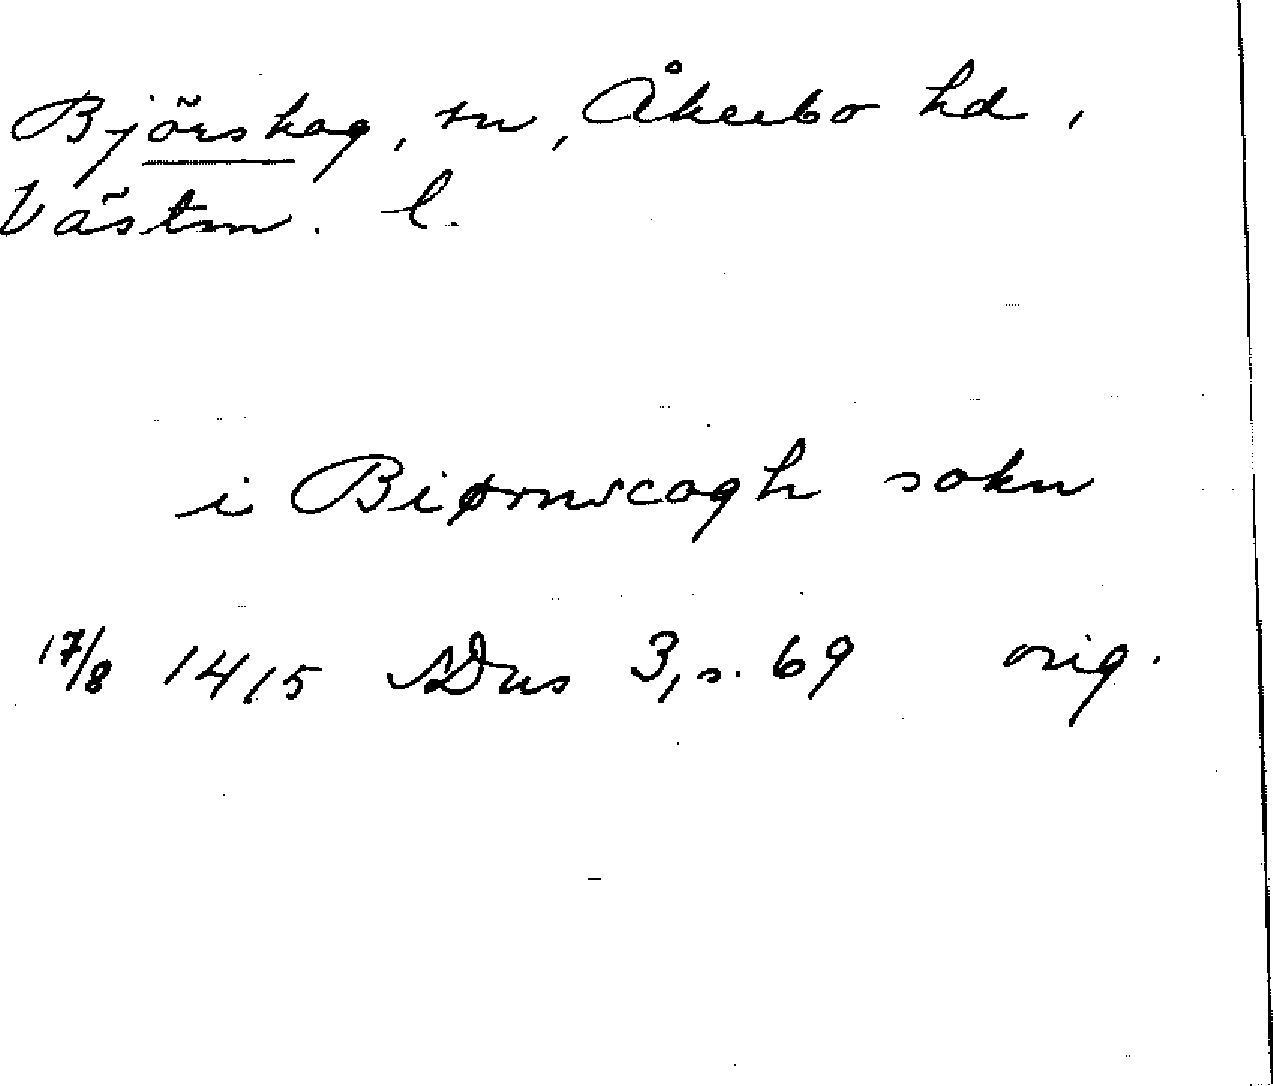 Björskog, sn, Åkerbo hd,
Västm. l.
i Biørnscogh sokn
17/8 1415 SDns 3, s. 69 orig.